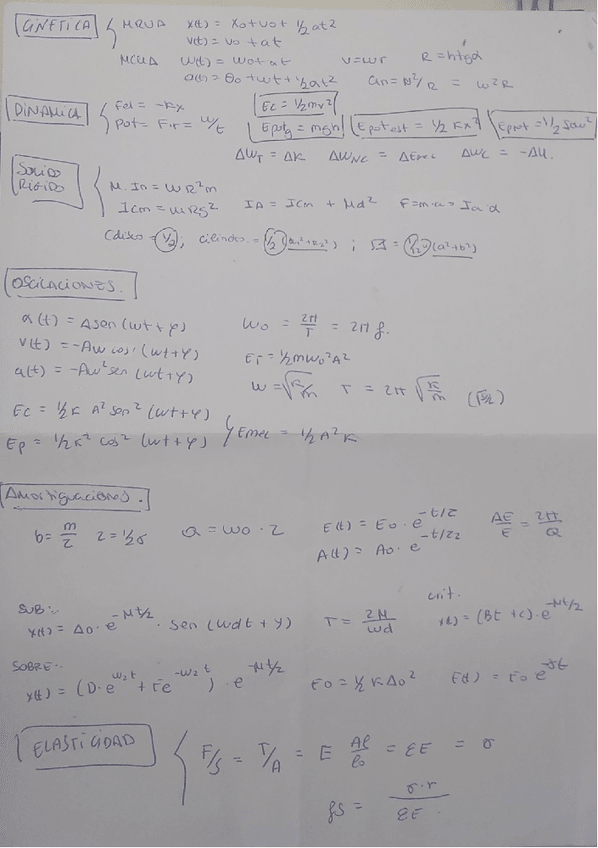 CINÉTICA { MRUA x(t) = x0 + v0 + 1/2 at²
v(t) = v0 + at
MCUA W(t) = w0 + αt v = wr
a(t) = θ0 + wt + 1/2 at² an = v²/R = w²R
DINÁMICA { Fel = -Kx
Pot = F·r = W/t
Ec = 1/2 mv²
Epotg = mgh Epotest = 1/2 Kx² Eprot = 1/2 Iω²
ΔWT = ΔK ΔWNC = ΔEmec ΔWC = -ΔU.
SOLIDO RIGIDO { M. In = mR²m
Icm = mRg² IA = Icm + Md² F = m·a = Ia·α
Cdisco = 1/2; cilindro = 1/2 (R1² + R2²); = 1/12 (a²+b²)
OSCILACIONES.
x(t) = A sen (wt + φ) w0 = 2π/T = 2π f.
v(t) = -Aw cos (wt + φ) ET = 1/2 m w0² A²
a(t) = -Aw² sen (wt + φ) w = √K/m T = 2π √K/m
Ec = 1/2 K A² sen² (wt + φ)
Ep = 1/2 K² cos² (wt + φ) } Emec = 1/2 A² K
Amortiguaciones.
b = m/2 2 = 1/2σ Q = w0 · 2 E(t) = E0 · e^-t/2 ΔE/E = 2π/Q
A(t) = A0 · e^-t/22
SUB: crit.
x(t) = A0 · e^-Mt/2 · sen (wdt + y) T = 2π/wd x(t) = (Bt + C) · e^-Mt/2
SOBRE:
x(t) = (D·e^w2t + Fe^-w2t) · e^-Mt/2 E0 = 1/2 K A0² E(t) = E0 e^-δt
ELASTICIDAD { F/S = T/A = E Δl/l0 = εE = σ
fs = σ·r / εE.